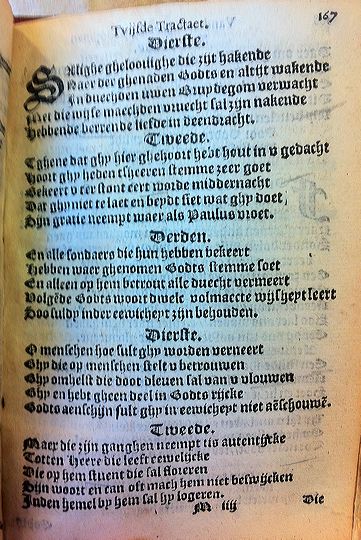 167
Tvijfde Tractaet.
Dierste.
SAlighe gheloouighe die zijt hakende
Naer der ghenaden Godts en altijt wakende
In duechden uwen Bruydegom verwacht
Met die wijse maechden vruecht sal zijn nakende
Hebbende berrende liefde in deendracht.
Tweede.
Tghene dat ghy hier ghehoort hebt hout in v gedacht
Hoort ghy heden tsheeren stemme zeer goet
Bekeert v eer stont eert worde middernacht
Dat ghy niet te laet en beydt siet wat ghy doet
Sijn gratie neempt waer als Paulus vroet.
Derden.
En alle sondaers die hun hebben bekeert
Hebben waer ghenomen Godts stemme soet
En alleen op hem betrout alle duecht vermeert
Volgēde Godts woort dwelc volmaecte wijsheyt leert
Hoo suldy inder eewicheyt zijn behouden.
Dierste.
O menschen hoe sult ghy worden verneert
Ghy die op menschen stelt v betrouwen
Ghy omhelst die doot dleuen sal van v vlouwen
Ghy en hebt gheen deel in Godts rijcke
Godts aenschijn sult ghy in eewicheyt niet aēschouwē.
Tweede.
Maer die zijn ganghen neempt tis autentijcke
Totten Heere die leeft eewelijcke
Die op hem stuent die sal floreren
Sijn woort en can oft mach hem niet beswijcken
Inden hemel by hem sal hy logeren.
M iiij Die